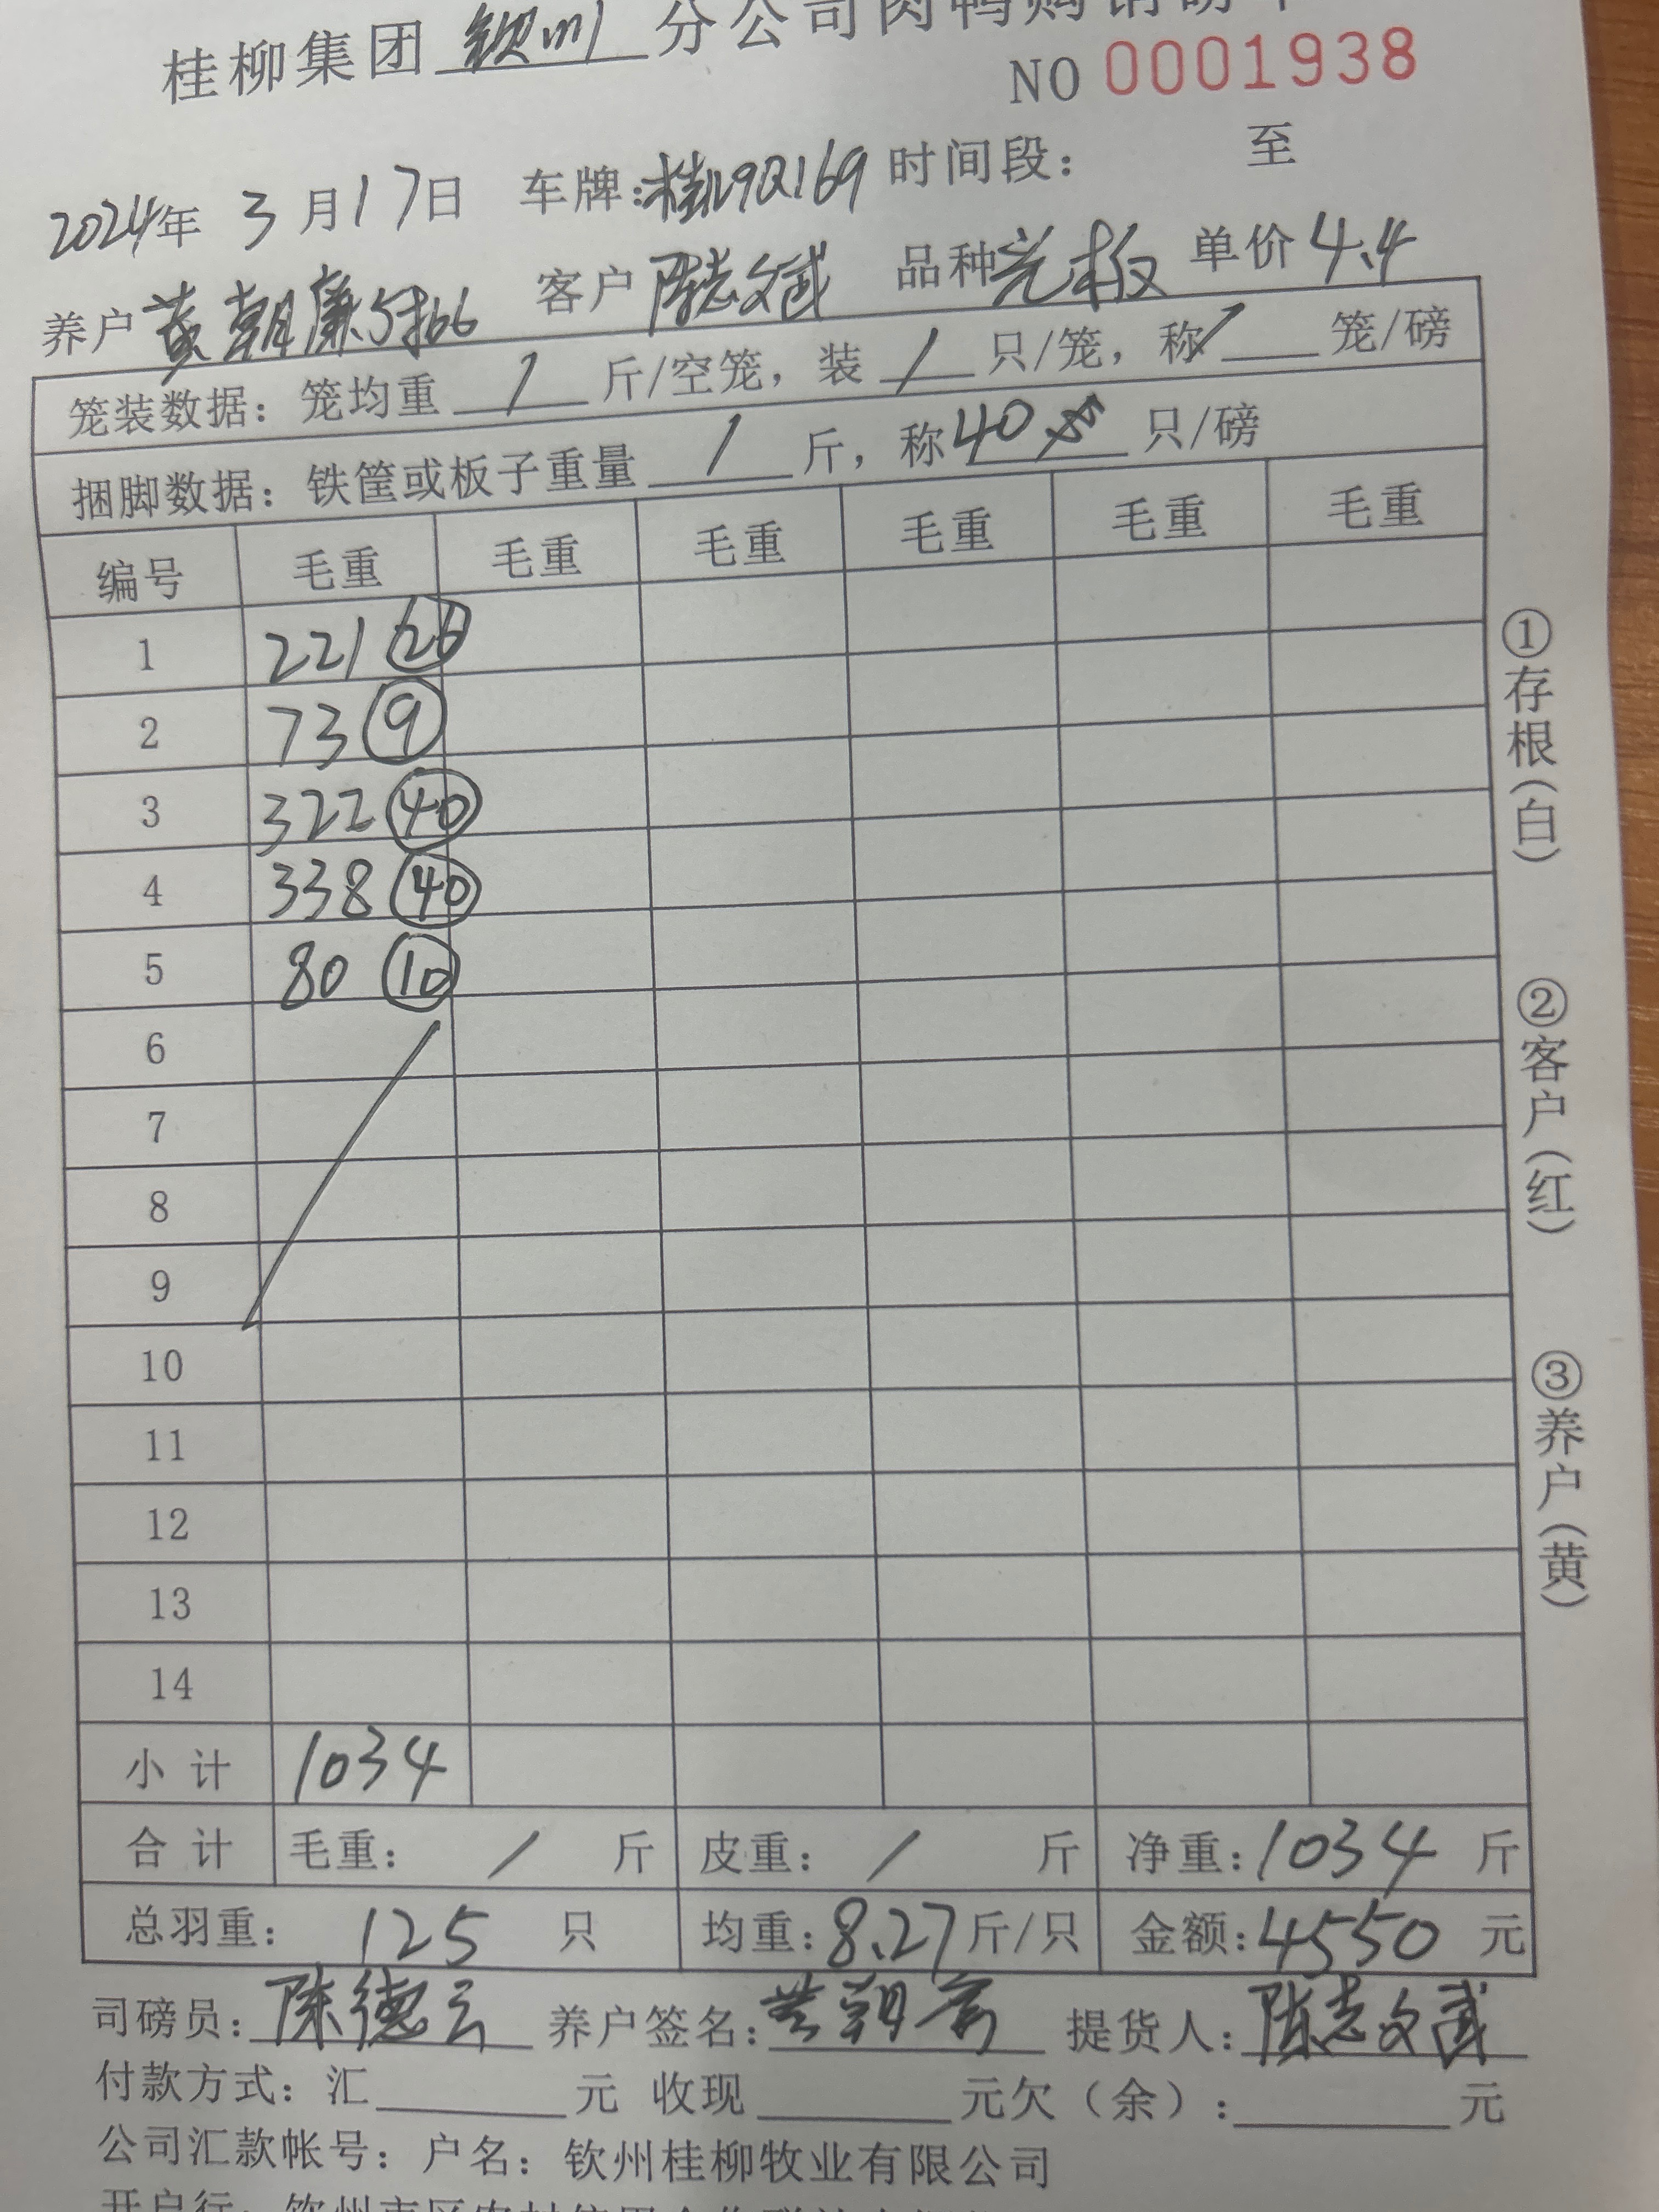 桂柳集团 钦州 分公司肉鸭购销磅单
NO 0001938
2024年 3月17日 车牌:桂N9Q169 时间段: 至
养户 黄朝廉 客户 陈志斌 品种 光板 单价 4.4
笼装数据: 笼均重 / 斤/空笼, 装 / 只/笼, 称 / 笼/磅
捆脚数据: 铁筐或板子重量 / 斤, 称 40 只/磅
编号 毛重 毛重 毛重 毛重 毛重 毛重
1 221 26
2 73 9
3 322 40
4 338 40
5 80 10
6
7
8
9
10
11
12
13
14
小计 1034
合计 毛重: / 斤 皮重: / 斤 净重: 1034 斤
总羽重: 125 只 均重: 8.27 斤/只 金额: 4550 元
司磅员: 陈德云 养户签名: 黄朝 提货人: 陈志斌
付款方式: 汇 元 收现 元欠(余): 元
公司汇款帐号: 户名: 钦州桂柳牧业有限公司
开户行:
①存根(白)
②客户(红)
③养户(黄)